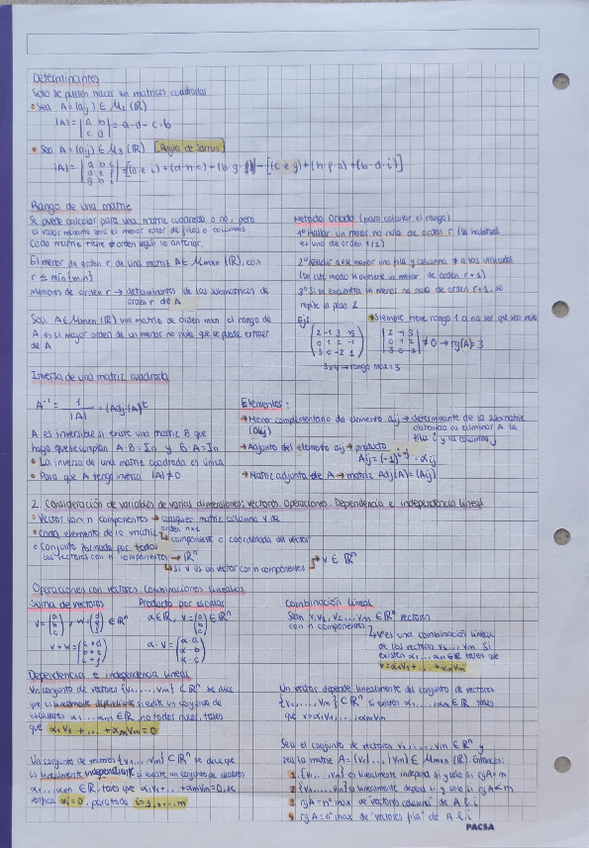 Determinantes
Solo se pueden hacer en matrices cuadradas
• Sea A = (aij) ∈ M₂ (ℝ)
|A| = | a b | = a·d - c·b
| c d |
• Sea A = (aij) ∈ M₃ (ℝ) [Regla de Sarrus]
|A| = | a b c |
| d e f |
| g h i |
Rango de una matriz
Se puede calcular para una matriz cuadrada o no, pero
el valor máximo será el menor valor de filas o columnas.
Cada matriz tiene ≠ orden según lo anterior.
El menor de orden r de una matriz A ∈ Mmxn (ℝ), con
r ≤ mín{m,n}
Menores de orden r → determinantes de las submatrices de
orden r de A
Sea A ∈ Mmxn (ℝ) una matriz de orden mxn el rango de
A es el mayor orden de un menor no nulo que se puede extraer
de A
Método Orlado (para calcular el rango)
1º Hallar un menor no nulo de orden r (lo habitual
es uno de orden 1 / 2)
2º Añadir a ese menor una fila y columna ≠ a las utilizadas
(De este modo se obtiene un menor de orden r+1)
3º Si se encuentra un menor no nulo de orden r+1, se
repite el paso 2
Ej: Siempre tiene rango 1 a no ser que sea nula
( 2 -1 3 5 ) | 2 -1 3 |
( 0 1 2 -1 ) | 0 1 2 | ≠ 0 → rg(A) = 3
( 3 0 -2 1 ) | 3 0 -2 |
3x4 → rango max = 3
Inversa de una matriz cuadrada
A⁻¹ = 1/|A| · (Adj (A))ᵗ
A es inversible si existe una matriz B que
haga que se cumplan A·B = In y B·A = In
• La inversa de una matriz cuadrada es única
• Para que A tenga inversa |A| ≠ 0
Elementos:
→ Menor complementario del elemento aij → determinante de la submatriz
(αij) obtenida al eliminar A la
fila i y la columna j
→ Adjunto del elemento aij → producto
Aij = (-1)^(i+j) · αij
→ Matriz adjunta de A → matriz Adj(A) = (Aij)
2. Consideración de variables de varias dimensiones: vectores. Operaciones. Dependencia e independencia lineal
• Vector con n componentes → cualquier matriz columna V de
orden nx1
• Cada elemento de la matriz → componente o coordenada del vector
• Conjunto formado por todos
los vectores con n componentes → ℝⁿ
↳ Si V es un vector con n componentes → v ∈ ℝⁿ
Operaciones con vectores. Combinaciones lineales
Suma de vectores
v = (a b c), w = (d e f) ∈ ℝⁿ
v + w = (a+d b+e c+f)
Producto por escalar
α ∈ ℝ, v = (a b c) ∈ ℝⁿ
α·v = (α·a α·b α·c)
Combinación lineal
Sean v, v₁, v₂ ... vm ∈ ℝⁿ vectores
con n componentes
↳ v es una combinación lineal
de los vectores v₁ ... vm si
existen α₁ ... αm ∈ ℝ tales que
v = α₁v₁ + ... + αmvm
Dependencia e independencia lineal
Un conjunto de vectores {v₁, ..., vm} ⊂ ℝⁿ se dice
que es linealmente dependiente si existe un conjunto de
escalares α₁ ... αm ∈ ℝ no todos nulos, tales
que α₁v₁ + ... + αmvm = 0
Un conjunto de vectores {v₁, ..., vm} ⊂ ℝⁿ se dice que
es linealmente independiente si existe un conjunto de escalares
α₁ ... αm ∈ ℝ, tales que α₁v₁ + ... + αmvm = 0, se
αi = 0, para todo i = 1, ..., m
Un vector depende linealmente del conjunto de vectores
{v₁, ..., vm} ⊂ ℝⁿ si existen α₁ ... αm ∈ ℝ tales
que v = α₁v₁, ..., αmvm
Sea el conjunto de vectores v₁, ..., vm ∈ ℝⁿ y
sea la matriz A = (v₁ ... vm) ∈ Mnxm (ℝ) Entonces:
1. {v₁, ..., vm} es linealmente independ si y solo si rgA = m
2. {v₁, ..., vm} linealmente depend si y solo si rgA < m
3. rgA = nº max de "vectores columna" de A l.i
4. rgA = nº max de "vectores fila" de A l.i
PACSA